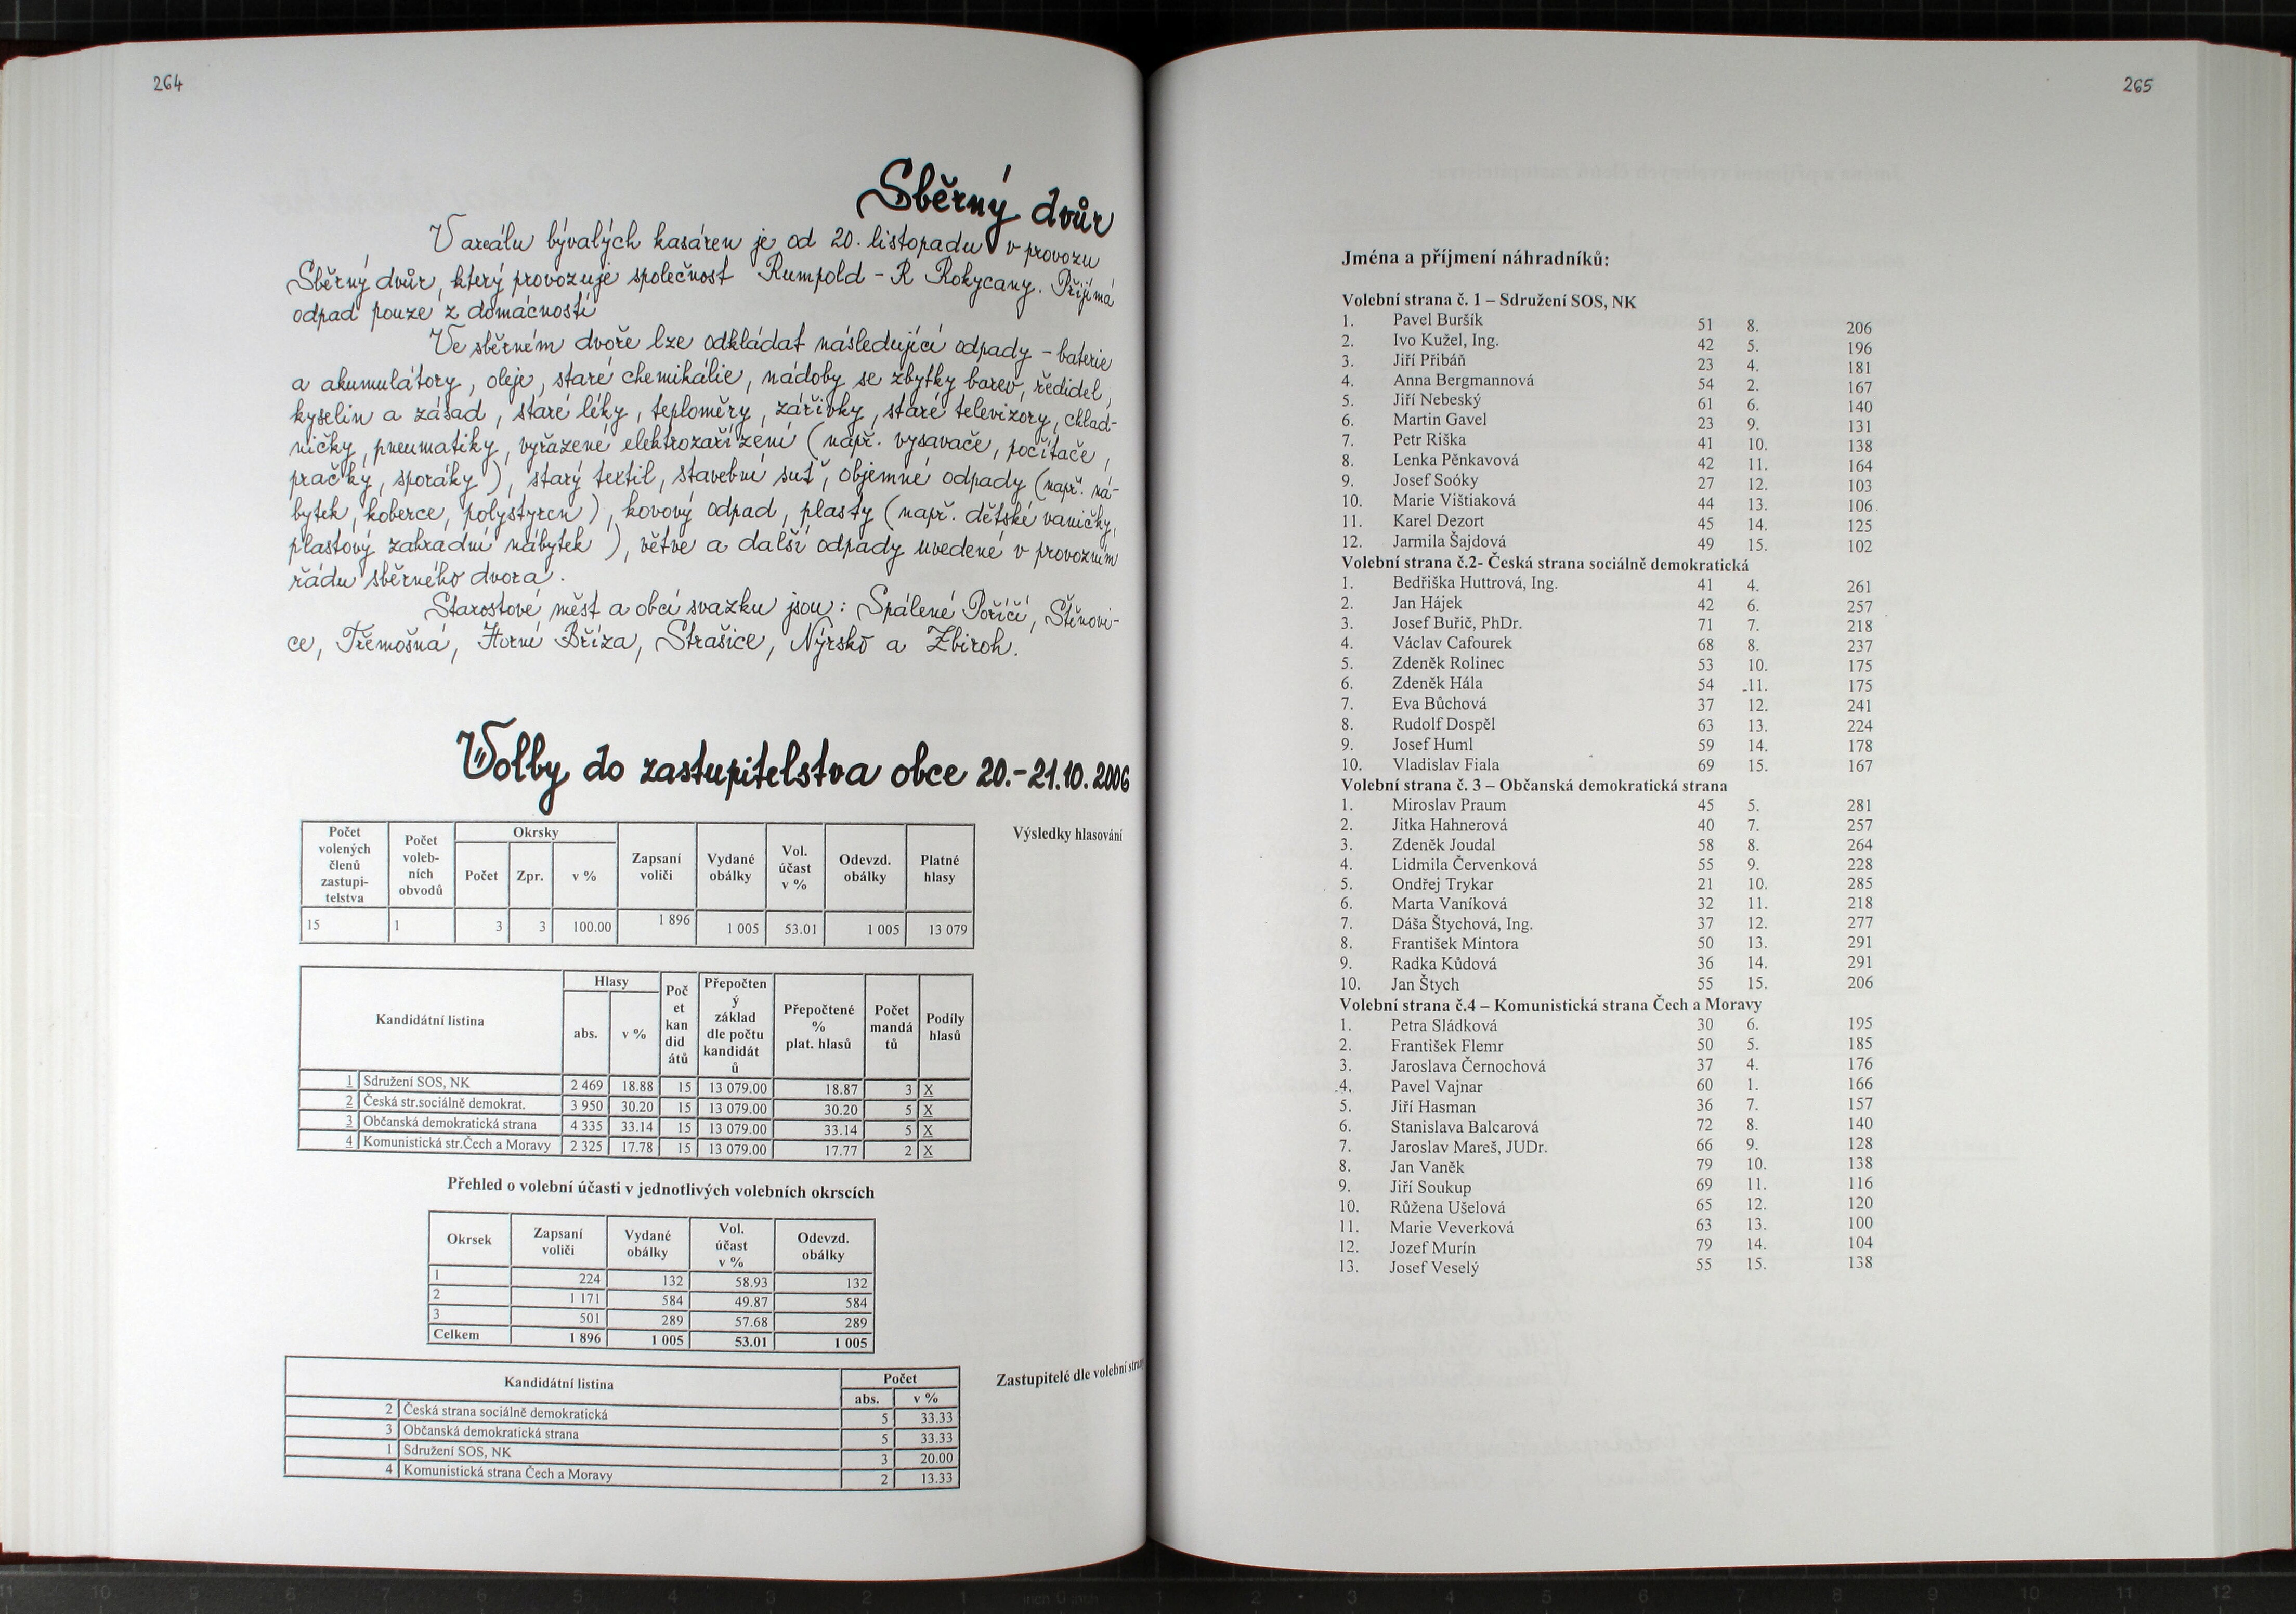 264
Sběrný dvůr
V areálu bývalých kasáren je od 20. listopadu v provozu
Sběrný dvůr, který provozuje společnost Rumpold - R Rokycany. Přijímá
odpad pouze z domácností
Ve sběrném dvoře lze odkládat následující odpady - baterie
a akumulátory, oleje, staré chemikálie, nádoby se zbytky barev, ředidel,
kyselin a zásad, staré léky, teploměry, zářivky, staré televizory, chlad-
ničky, pneumatiky, vyřazené elektrozařízení (např. vysavače, počítače,
pračky, sporáky), starý textil, stavební suť, objemné odpady (např. ná-
bytek, koberce, polystyren), kovový odpad, plasty (např. dětské vaničky,
plastový zahradní nábytek), větve a další odpady uvedené v provozním
řádu sběrného dvora.
Starostové měst a obcí svazku jsou: Spálené Poříčí, Štěnovi-
ce, Třemošná, Horní Bříza, Strašice, Nýrsko a Zbiroh.
Volby do zastupitelstva obce 20.-21.10.2006
Výsledky hlasování
Počet volených členů zastupi- telstva Počet voleb- ních obvodů Okrsky Zapsaní voliči Vydané obálky Vol. účast v % Odevzd. obálky Platné hlasy
Počet Zpr. v %
15 1 3 3 100.00 1 896 1 005 53.01 1 005 13 079
Kandidátní listina Hlasy Poč et kan did átů Přepočten ý základ dle počtu kandidát ů Přepočtené % plat. hlasů Počet mandá tů Podíly hlasů
abs. v %
1 Sdružení SOS, NK 2 469 18.88 15 13 079.00 18.87 3 X
2 Česká str.sociálně demokrat. 3 950 30.20 15 13 079.00 30.20 5 X
3 Občanská demokratická strana 4 335 33.14 15 13 079.00 33.14 5 X
4 Komunistická str.Čech a Moravy 2 325 17.78 15 13 079.00 17.77 2 X
Přehled o volební účasti v jednotlivých volebních okrscích
Okrsek Zapsaní voliči Vydané obálky Vol. účast v % Odevzd. obálky
1 224 132 58.93 132
2 1 171 584 49.87 584
3 501 289 57.68 289
Celkem 1 896 1 005 53.01 1 005
Zastupitelé dle volební
Kandidátní listina Počet
abs. v %
2 Česká strana sociálně demokratická 5 33.33
3 Občanská demokratická strana 5 33.33
1 Sdružení SOS, NK 3 20.00
4 Komunistická strana Čech a Moravy 2 13.33
265
Jména a příjmení náhradníků:
Volební strana č. 1 – Sdružení SOS, NK
1. Pavel Buršík 51 8. 206
2. Ivo Kužel, Ing. 42 5. 196
3. Jiří Přibáň 23 4. 181
4. Anna Bergmannová 54 2. 167
5. Jiří Nebeský 61 6. 140
6. Martin Gavel 23 9. 131
7. Petr Riška 41 10. 138
8. Lenka Pěnkavová 42 11. 164
9. Josef Soóky 27 12. 103
10. Marie Vištiaková 44 13. 106
11. Karel Dezort 45 14. 125
12. Jarmila Šajdová 49 15. 102
Volební strana č.2- Česká strana sociálně demokratická
1. Bedřiška Huttrová, Ing. 41 4. 261
2. Jan Hájek 42 6. 257
3. Josef Buřič, PhDr. 71 7. 218
4. Václav Cafourek 68 8. 237
5. Zdeněk Rolinec 53 10. 175
6. Zdeněk Hála 54 11. 175
7. Eva Bůchová 37 12. 241
8. Rudolf Dospěl 63 13. 224
9. Josef Huml 59 14. 178
10. Vladislav Fiala 69 15. 167
Volební strana č. 3 – Občanská demokratická strana
1. Miroslav Praum 45 5. 281
2. Jitka Hahnerová 40 7. 257
3. Zdeněk Joudal 58 8. 264
4. Lidmila Červenková 55 9. 228
5. Ondřej Trykar 21 10. 285
6. Marta Vaníková 32 11. 218
7. Dáša Štychová, Ing. 37 12. 277
8. František Mintora 50 13. 291
9. Radka Kůdová 36 14. 291
10. Jan Štych 55 15. 206
Volební strana č.4 – Komunistická strana Čech a Moravy
1. Petra Sládková 30 6. 195
2. František Flemr 50 5. 185
3. Jaroslava Černochová 37 4. 176
4. Pavel Vajnar 60 1. 166
5. Jiří Hasman 36 7. 157
6. Stanislava Balcarová 72 8. 140
7. Jaroslav Mareš, JUDr. 66 9. 128
8. Jan Vaněk 79 10. 138
9. Jiří Soukup 69 11. 116
10. Růžena Ušelová 65 12. 120
11. Marie Veverková 63 13. 100
12. Jozef Murín 79 14. 104
13. Josef Veselý 55 15. 138